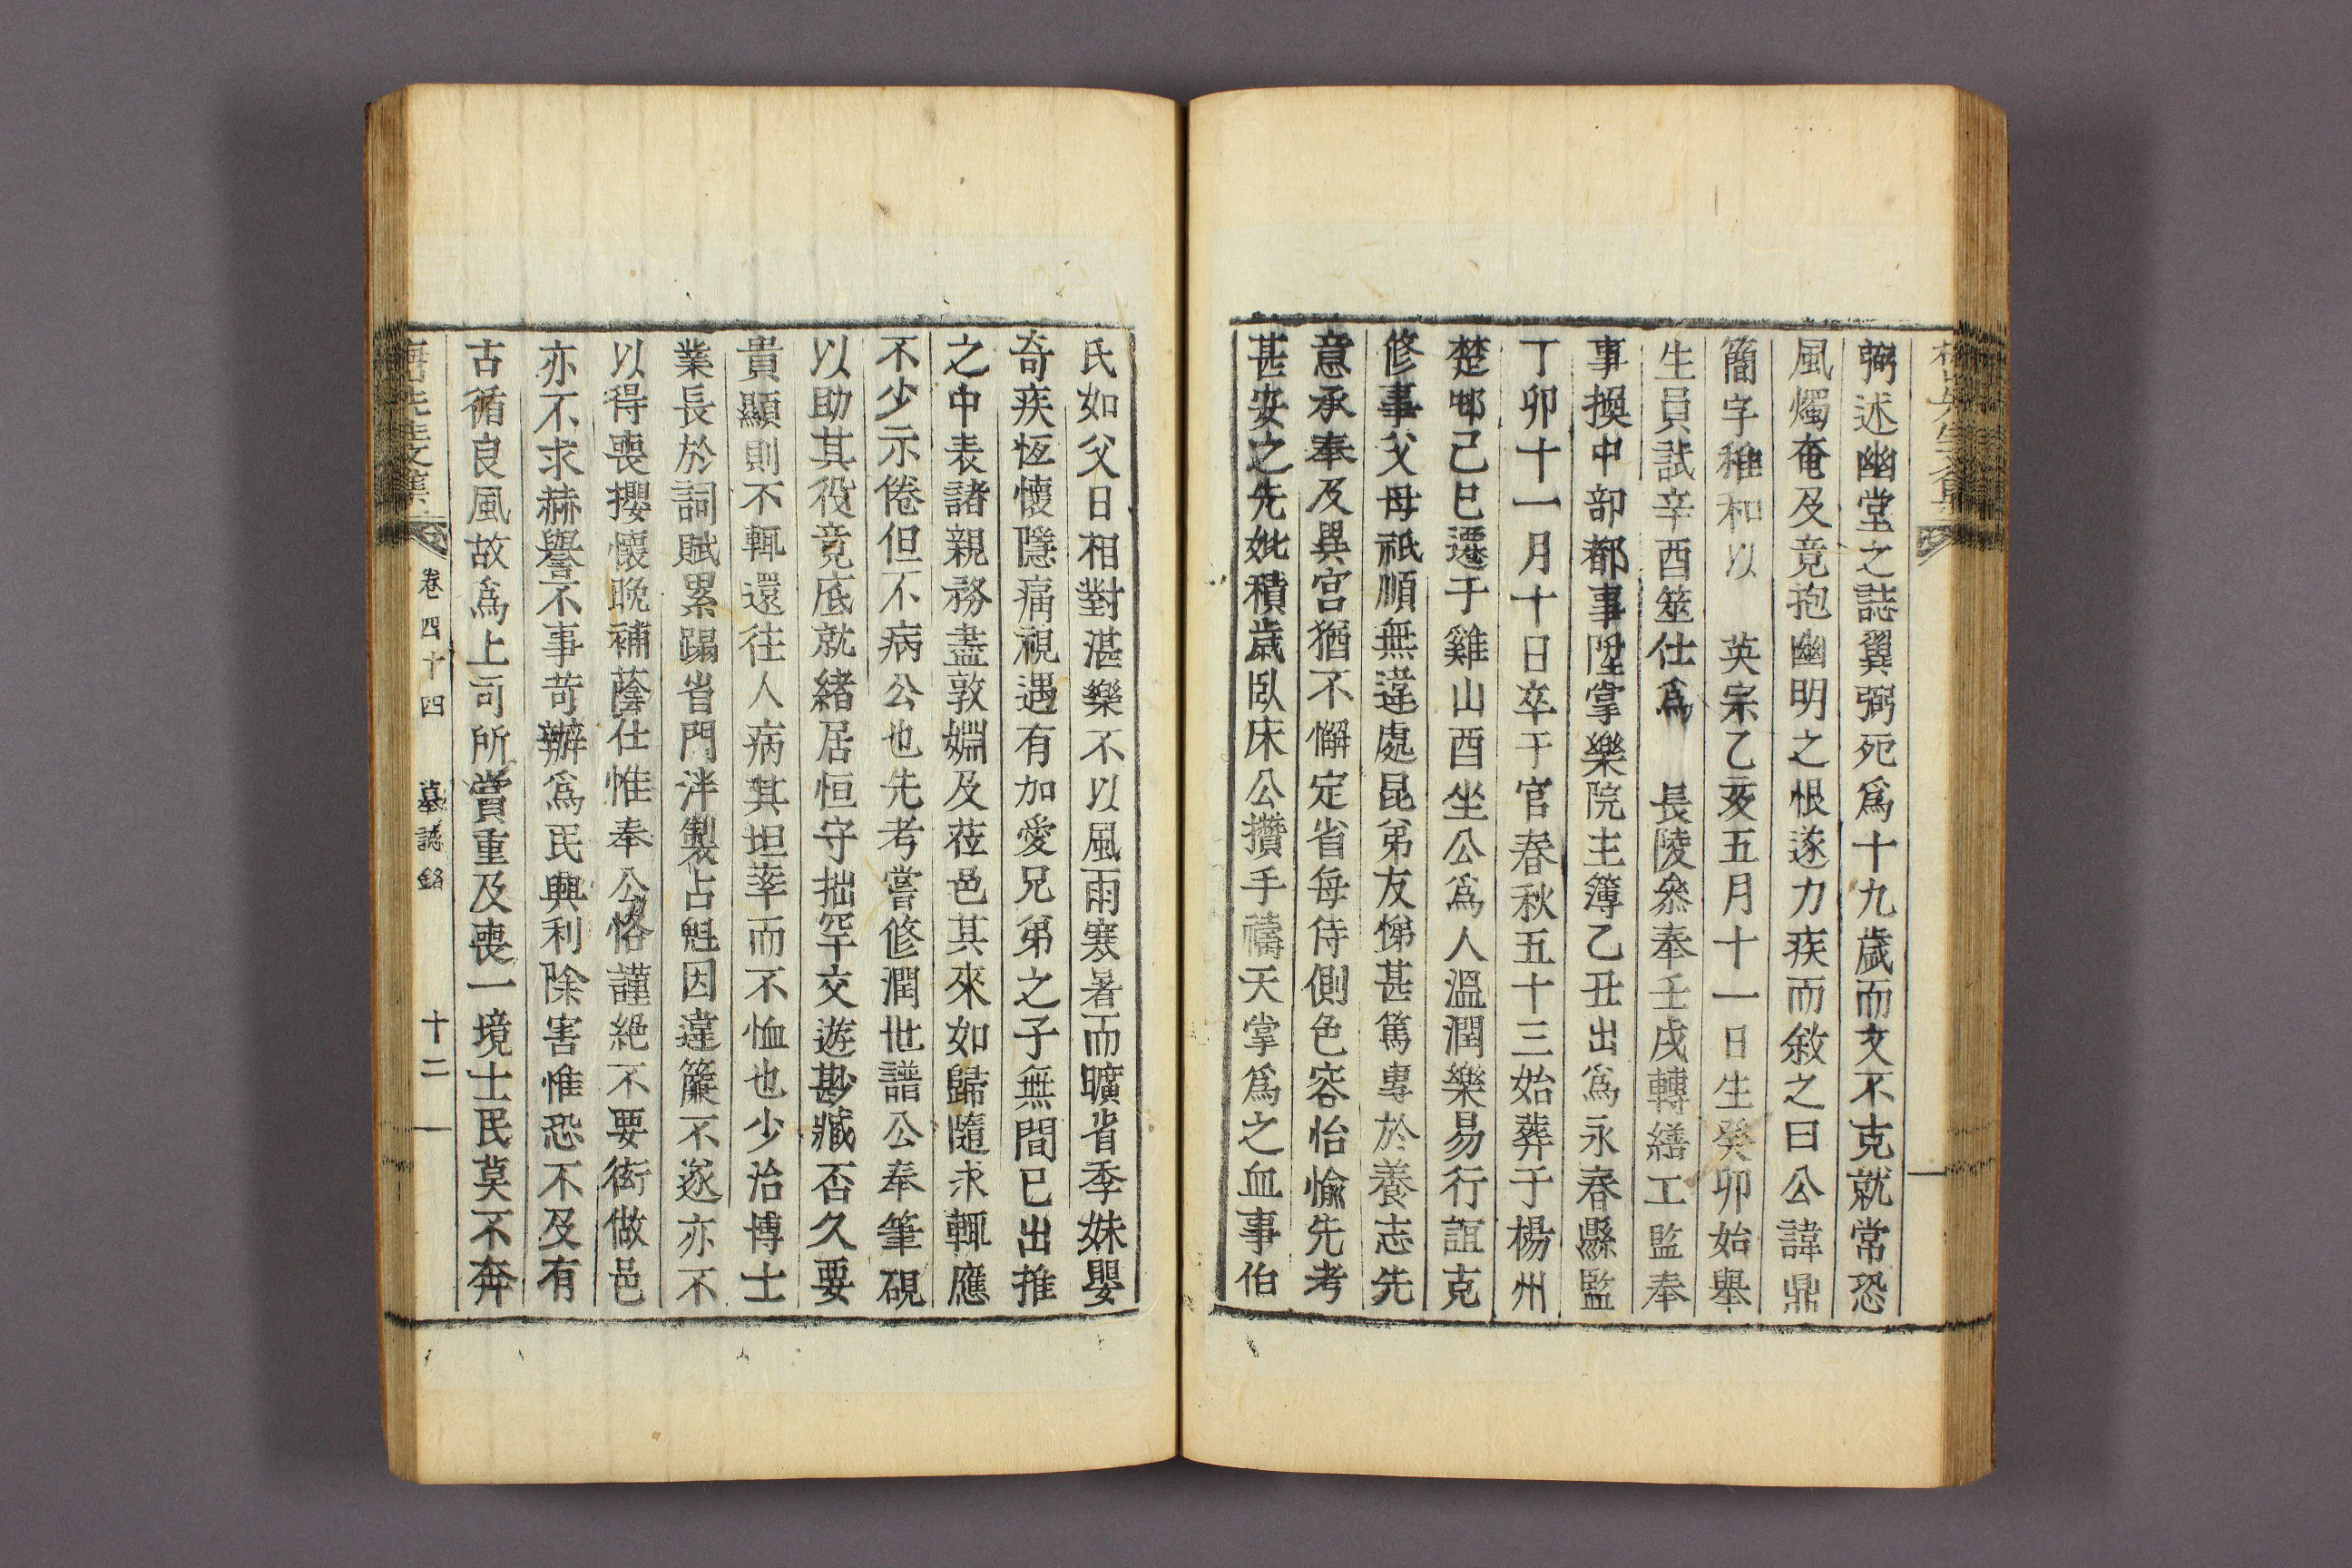 弼述幽堂之誌翼弼死爲十九歲而文不克就常恐
風燭奄及竟抱幽明之恨遂力疾而敘之曰公諱鼎
簡字稚和以 英宗乙亥五月十一日生癸卯始舉
生員試辛酉筮仕爲 長陵叅奉壬戌轉繕工監奉
事換中部都事陞掌樂院主簿乙丑出爲永春縣監
丁卯十一月十日卒于官春秋五十三始葬于楊州
楚邨己巳遷于雞山酉坐公爲人溫潤樂易行誼克
修事父母祇順無違處昆弟友悌甚篤專於養志先
意承奉及異宮猶不懈定省每侍側色容怡愉先考
甚安之先妣積歲臥床公攢手禱天掌爲之血事伯
氏如父日相對湛樂不以風雨寒暑而曠省季妹嬰
奇疾恆懷隱痛視遇有加愛兄弟之子無間已出推
之中表諸親務盡敦婣及莅邑其來如歸隨求輒應
不少示倦但不病公也先考嘗修潤世譜公奉筆硯
以助其役竟底就緒居恒守拙罕交遊尠臧否久要
貴顯則不輒還往人病其坦率而不恤也少治博士
業長於詞賦累蹋省門泮製占魁因違簾不遂亦不
以得喪攖懷晩補蔭仕惟奉公恪謹絶不要衒做邑
亦不求赫譽不事苛辦爲民興利除害惟恐不及有
古循良風故爲上司所賞重及喪一境士民莫不奔
先生文集 卷四十四 墓誌銘 十二